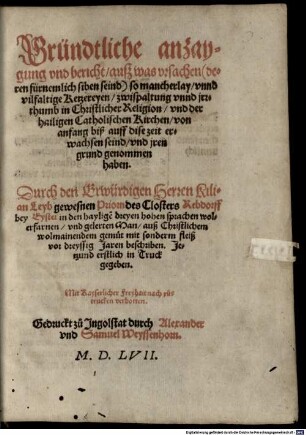 Gründtliche anzay-
gung vnd bericht/ auß was vrsachen/ (de-
ren fürnemlich siben seind) so mancherlay/ vnnd
vilfaltige Ketzereyen/ zwispaltung vnnd jrr-
thumb in Christlicher Religion/ vnd der
hailigen Catholischen Kirchen/ von
anfang biß auff dise zeit er-
wachsen seind/ vnd jren
grund genommen
haben.
Durch den Erwürdigen Herren Kili-
an Leyb gewesnen Priorn des Closters Rebdorff
bey Eystet in den haylige dreyen hohen sprachen wol
erfarnen/ vnd gelerten Man/ auß Christlichem
wolmainendem gemüt mit sonderm fleiß
vor dreyssig Jaren beschriben. Je-
tzund erstlich in Truck
gegeben.
Mit Kayserlicher Freyhait nach zů-
trucken verbotten.
Gedruckt zů Ingolstat durch Alexander
vnd Samuel Weyssenhorn.
M. D. LVII.